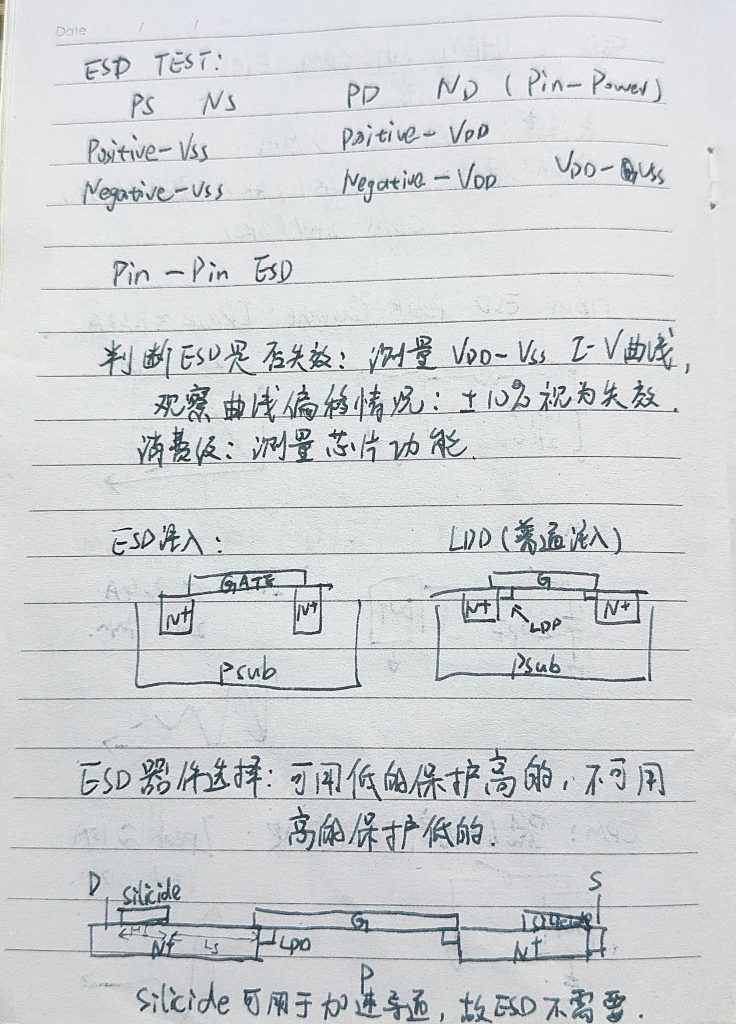 Date / /
ESD TEST:
PS NS PD ND (Pin-Power)
Positive-VSS Positive-VDD
Negative-VSS Negative-VDD VDD-VSS
Pin-Pin ESD
判断ESD是否失效：测量VDD-VSS I-V曲线，
观察曲线偏移情况：±10%视为失效.
消费级：测量芯片功能.
ESD注入： LDD(普通注入)
GATE G
N+ N+ N+ LDD N+
Psub Psub
ESD器件选择：可用低的保护高的，不可用
高的保护低的.
D S
Silicide G Silicide
N+ LS LDD N+
P
Silicide可用于加速导通，故ESD不需要.